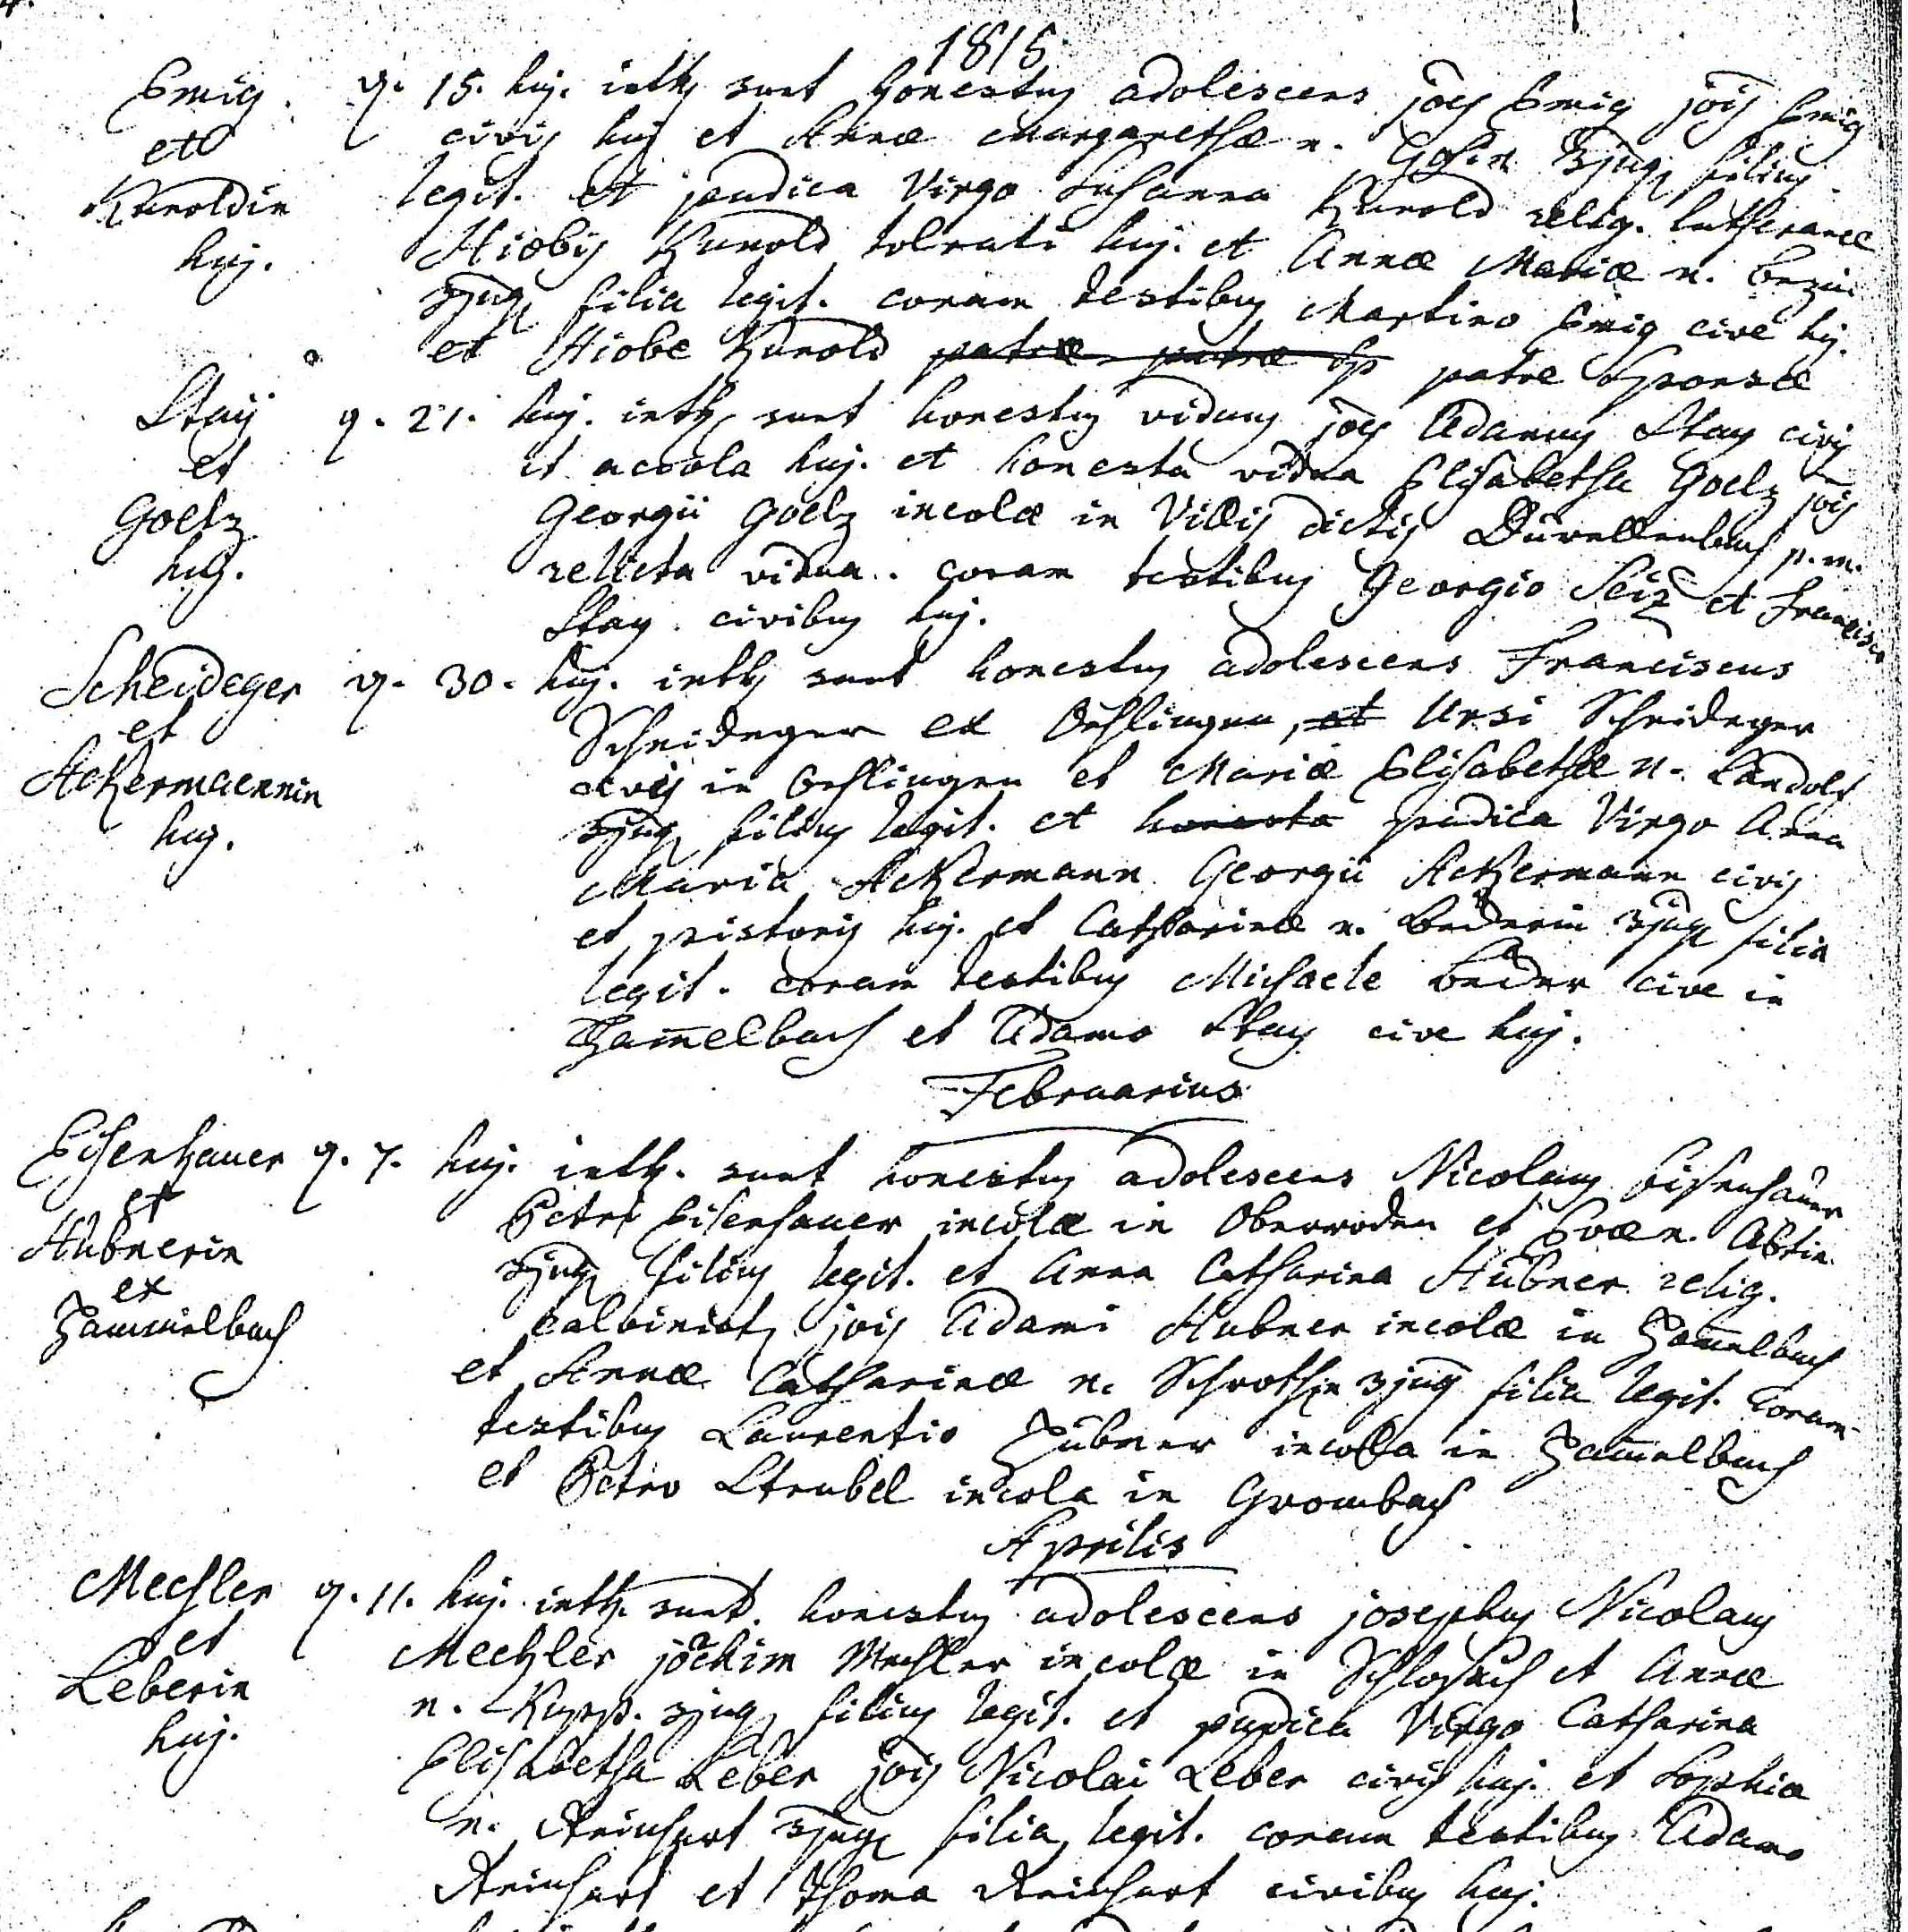 1815
Emig
et
Kunoldin
huj.
q. 15. huj. inth sunt honestus adolescens joes Emig jois Emig
civis huj et Annæ Margarethæ n. conjug filius
legit. et pudica Virgo Susanna Kunold relig. lutheranæ
Hiobis Kunold tolerati huj. et Annæ Mariæ n.
conjug filia legit. coram testibus Martino Emig cive hj.
et Hiobe Kunold patre patre sp patre sponsæ
Stay
et
Goelz
huj.
q. 21. huj. inth sunt honestus viduus joes Adamus Stay civis
et accola huj. et honesta vidua Elisabetha Goelz jois
Georgii Goelz incolæ in Villis dictis Dürrellenbach p. m.
relicta vidua. coram testibus Georgio Seiz et Francisco
Stay civibus huj.
Scheideger
et
Ackermaennin
huj.
q. 30. huj. inth sunt honestus adolescens Franciscus
Scheideger ex Oehlingen, et Ursi Scheideger
civis in Oehlingen et Mariæ Elisabethæ n. Landolt
conjug filius legit. et honesta pudica Virgo Anna
Maria Ackermann Georgii Ackermann civis
et pistoris huj. et Catharinæ n. Bederin conjug filia
legit. coram testibus Michaele Beder cive in
Hammelbach et Adamo Stay cive huj.
Februarius
Eisenhauer
et
Hübnerin
ex
Hammelbach
q. 7. huj. inth. sunt honestus adolescens Nicolaus Eisenhauer
Petri Eisenhauer incolæ in Oberroden et Evæ n. Abtin
conjug filius legit. et Anna Catharina Hübner relig.
calvinist jois Adami Hübner incolæ in Hammelbach
et Annæ Catharinæ n. Schrothin conjug filia legit. coram
testibus Laurentio Hübner incola in Hammelbach
et Petro Strubel incola in Grombach
Aprilis
Mechler
et
Leberin
huj.
q. 11. huj. inth. sunt. honestus adolescens josephus Nicolaus
Mechler jochim Mechler incolæ in Schlosach et Annæ
n. Kupp. conjug filius legit. et pudica Virgo Catharina
Elisabetha Leber jois Nicolai Leber civis huj. et Sophia
n. Reinhart conjug filia legit. coram testibus Adamo
Reinhart et Thoma Reinhart civibus huj.